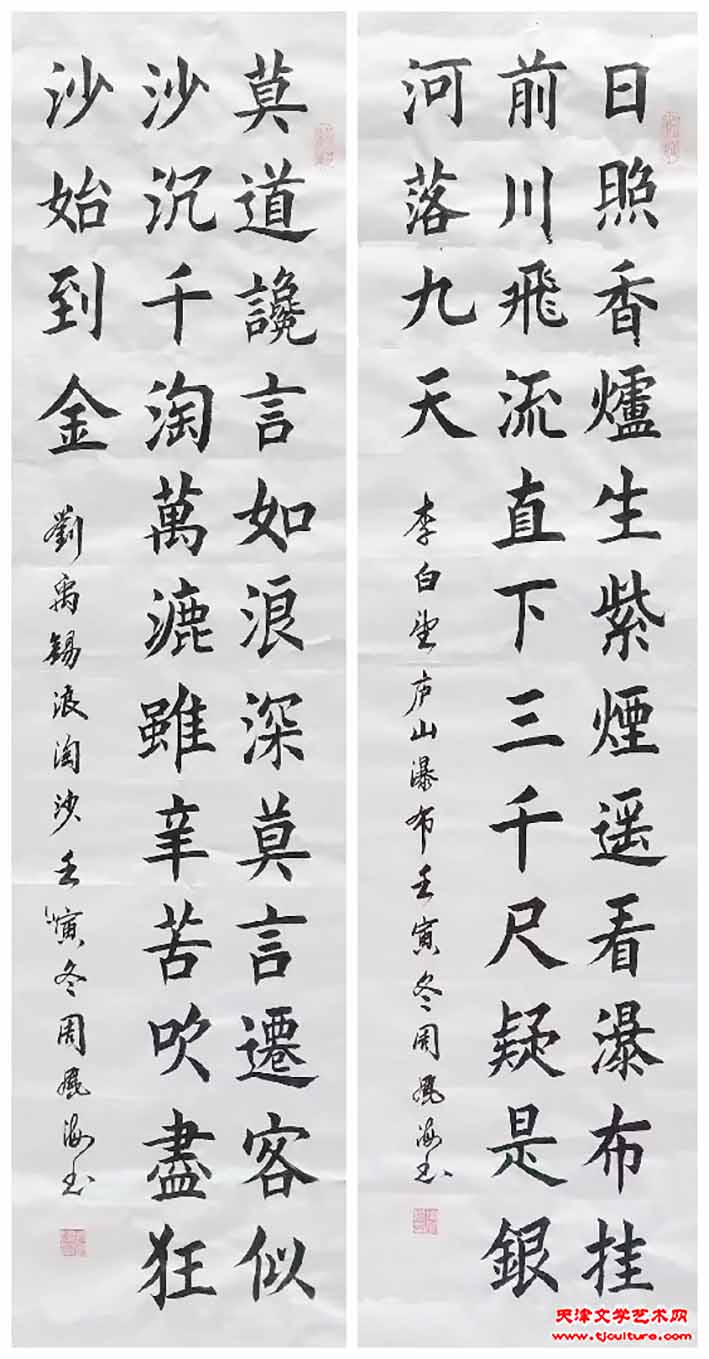 日照香爐生紫煙遥看瀑布挂
前川飛流直下三千尺疑是銀
河落九天
李白望庐山瀑布壬寅冬周風海书
莫道讒言如浪深莫言遷客似
沙沉千淘萬漉雖辛苦吹盡狂
沙始到金
劉禹錫浪淘沙壬寅冬周風海书
天津文学艺术网
www.tjculture.com